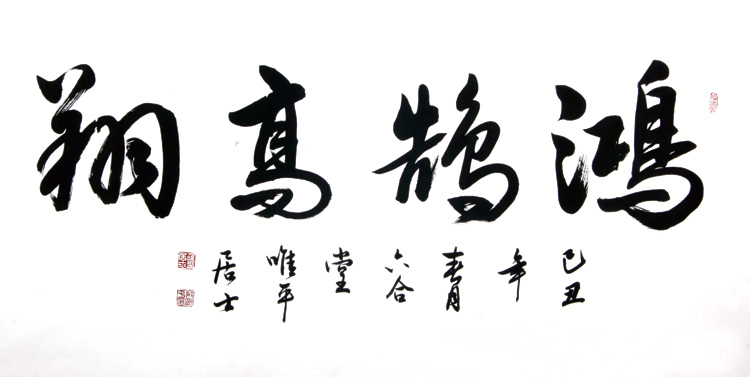 鴻鵠高翔
己丑年春月六合堂唯平居士